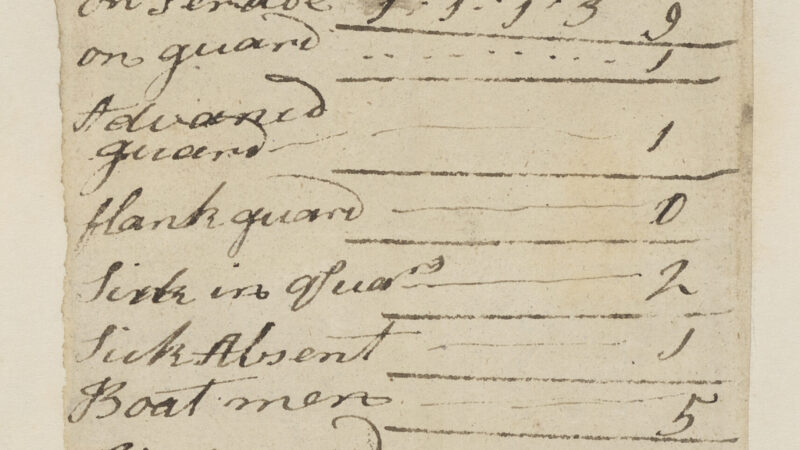 on
on guard 1
Advancd
guard 1
flank guard 0
Sick in qSuars 2
Sick Absent 1
Boat men 5